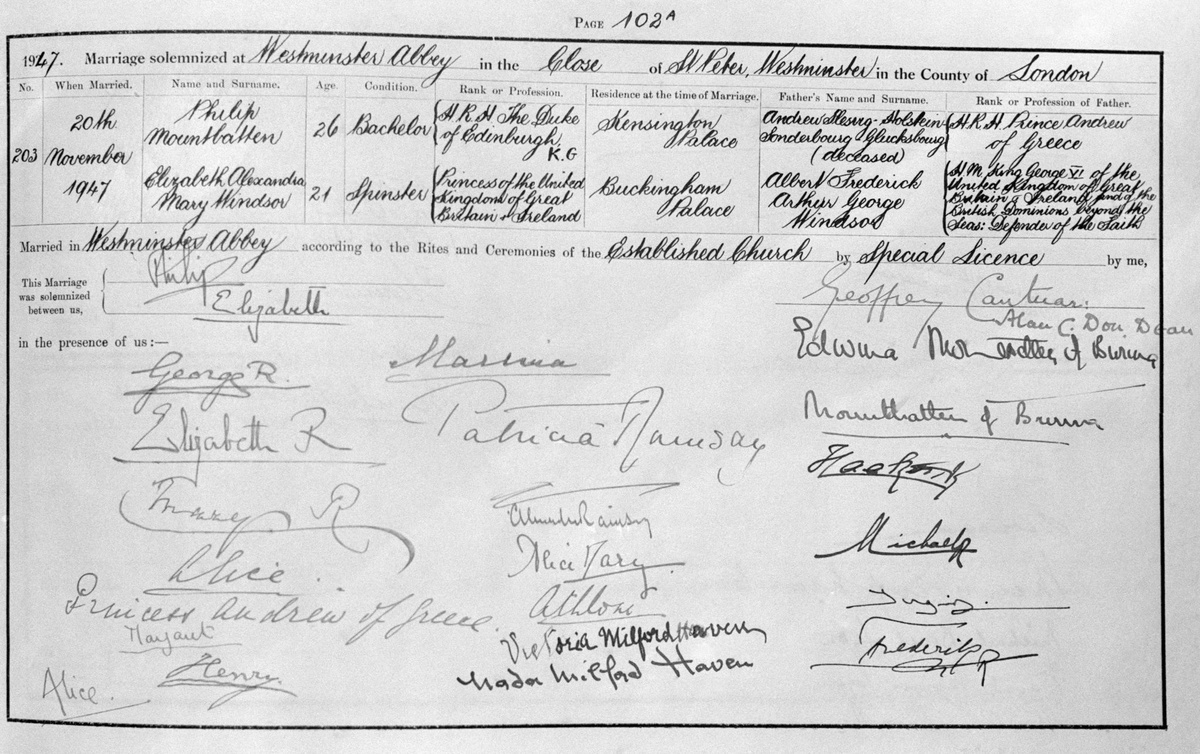 PAGE 102A
1947. Marriage solemnized at Westminster Abbey in the Close of St Peter, Westminster in the County of London
No. When Married. Name and Surname. Age. Condition. Rank or Profession. Residence at the time of Marriage. Father's Name and Surname. Rank or Profession of Father.
203
20th
November
1947
Philip
Mountbatten
26
Bachelor
H.R.H. The Duke
of Edinburgh,
K.G
Kensington
Palace
Andrew Slesvig-Holstein
Sonderbourg-Glucksbourg
(deceased)
H.R.H. Prince Andrew
of Greece
Elizabeth Alexandra
Mary Windsor
21
Spinster
Princess of the United
Kingdom of Great
Britain & Ireland
Buckingham
Palace
Albert Frederick
Arthur George
Windsor
H.M. King George VI of the
United Kingdom of Great
Britain & Ireland and of the
British Dominions beyond the
Seas: Defender of the Faith
Married in Westminster Abbey according to the Rites and Ceremonies of the Established Church by Special Licence by me,
This Marriage
was solemnized
between us,
Philip
Elizabeth
Geoffrey Cantuar:
Alan C. Don Dean
in the presence of us:—
George R.
Elizabeth R
Mary R
Alice
Princess Andrew of Greece.
Margaret
Henry.
Alice.
Marina
Patricia Ramsay
Alexander Ramsay
Alice Mary
Athlone
Victoria Milford Haven
Nada Milford Haven
Edwina Mountbatten of Burma
Mountbatten of Burma
Haakon R
Michael R
Frederik R